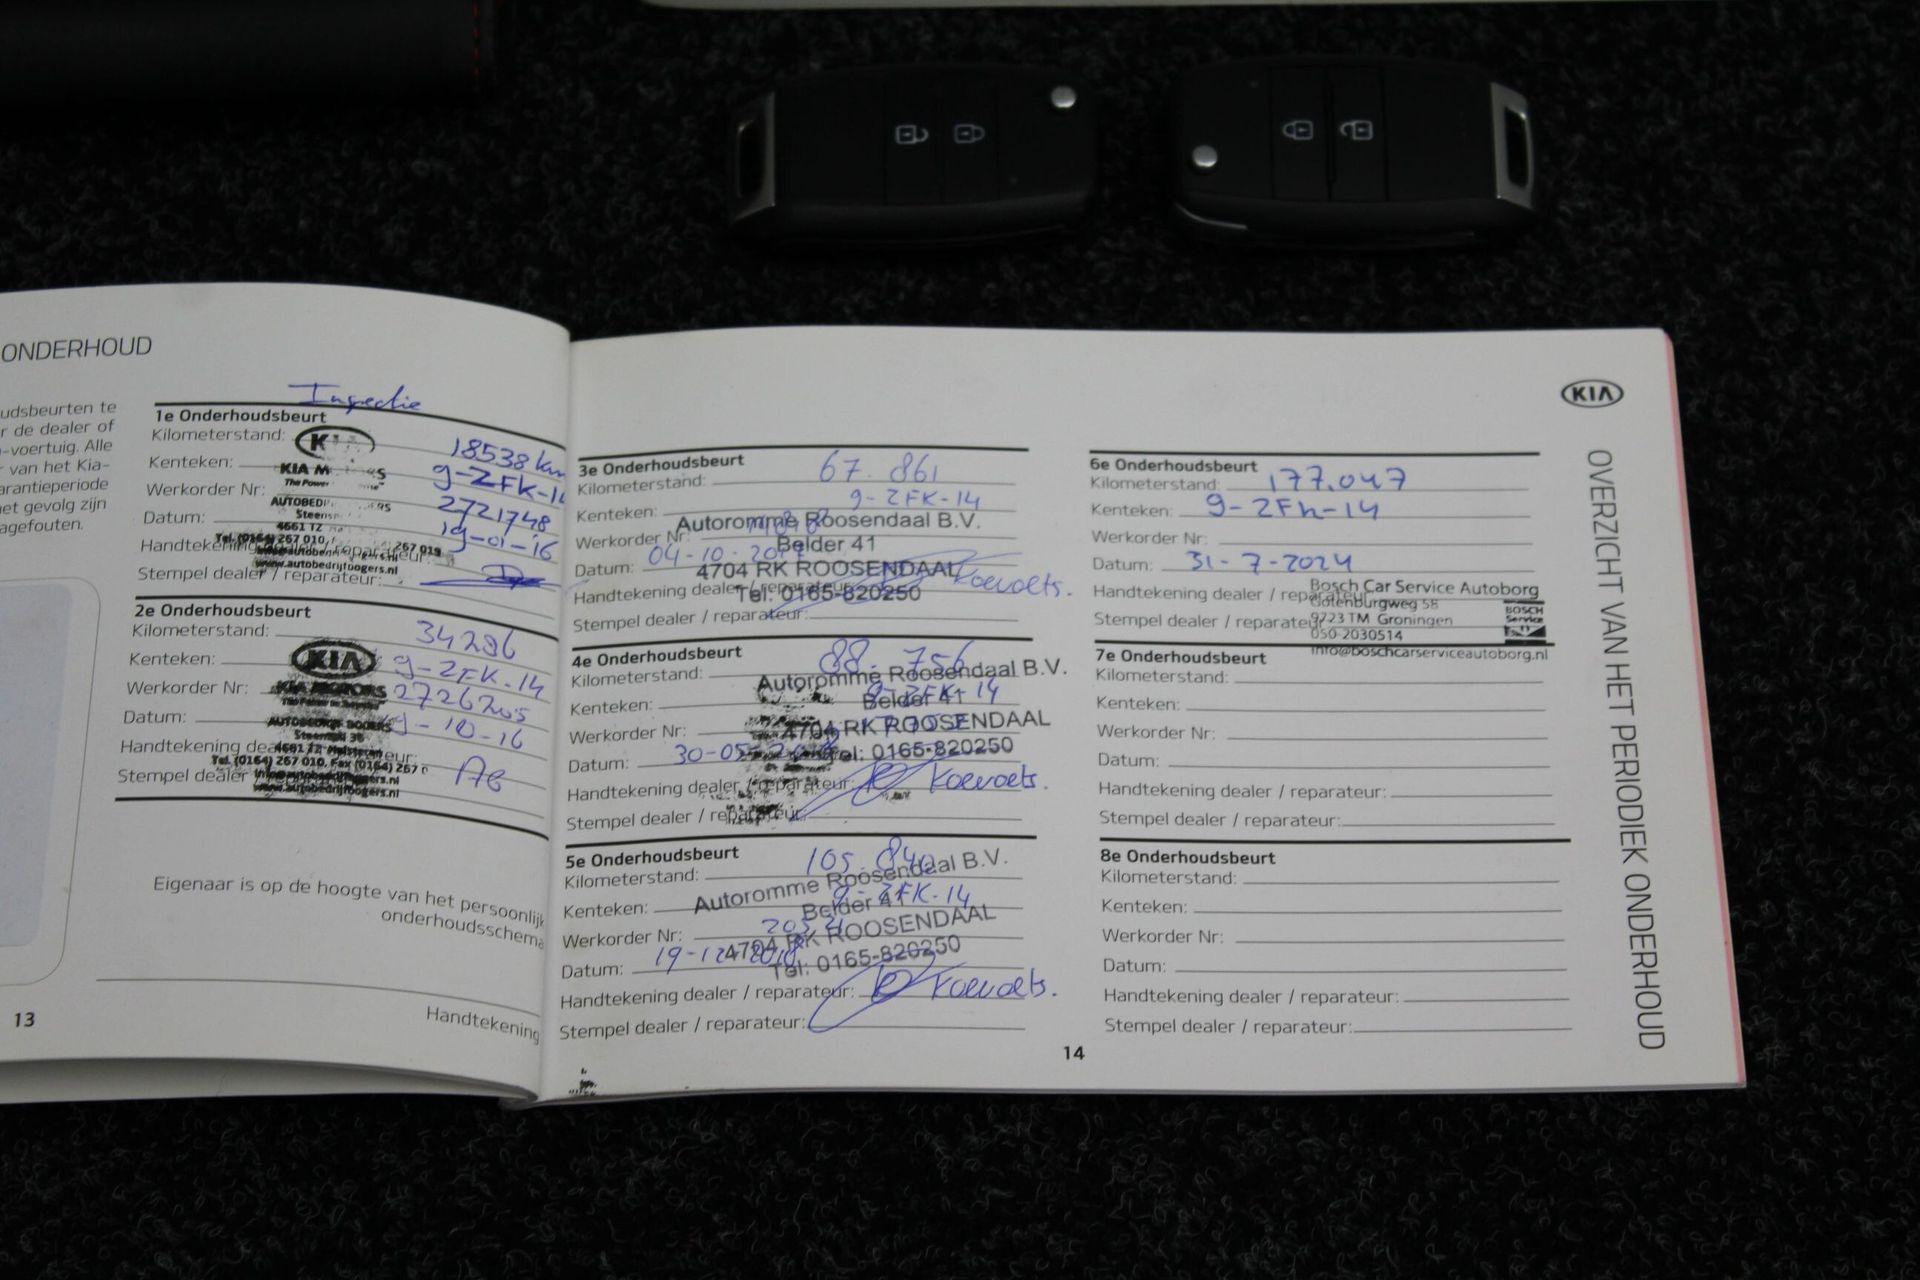 ONDERHOUD
udsbeurten te
r de dealer of
-voertuig. Alle
van het Kia-
arantieperiode
et gevolg zijn
agefouten.
13
Inspectie
1e Onderhoudsbeurt
Kilometerstand: 18538 km
Kenteken: 9-ZFK-14
Werkorder Nr: 2721748
Datum: 19-01-16
Handtekening dealer / reparateur:
Stempel dealer / reparateur:
KIA
Tel. (0164) 267 010,
267 019
info@autobedrijfbogers.nl
www.autobedrijfbogers.nl
2e Onderhoudsbeurt
Kilometerstand: 34296
Kenteken: 9-ZFK-14
Werkorder Nr: 2726205
Datum: 19-10-16
Handtekening
Stempel dealer
KIA
KIA MOTORS
AUTOBEDRIJF BOGERS
Tel. (0164) 267 010, Fax (0164) 267 0
info@autobedrijfbogers.nl
www.autobedrijfbogers.nl
Eigenaar is op de hoogte van het persoonlijk
onderhoudsschema
Handtekening
3e Onderhoudsbeurt
Kilometerstand: 67.861
Kenteken: 9-ZFK-14
Werkorder Nr:
Datum: 04-10-2017
Handtekening dealer / reparateur: Koevoets.
Stempel dealer / reparateur:
Autoromme Roosendaal B.V.
Belder 41
4704 RK ROOSENDAAL
Tel: 0165-820250
4e Onderhoudsbeurt
Kilometerstand: 88.756
Kenteken: 9-ZFK-14
Werkorder Nr:
Datum: 30-05-2018
Handtekening dealer / reparateur: Koevoets.
Stempel dealer / reparateur:
Autoromme Roosendaal B.V.
Belder 41
4704 RK ROOSENDAAL
Tel: 0165-820250
5e Onderhoudsbeurt
Kilometerstand: 105.840
Kenteken: 9-ZFK-14
Werkorder Nr:
Datum: 19-12-2018
Handtekening dealer / reparateur: Koevoets.
Stempel dealer / reparateur:
Autoromme Roosendaal B.V.
Belder 41
4704 RK ROOSENDAAL
Tel: 0165-820250
6e Onderhoudsbeurt
Kilometerstand: 177.047
Kenteken: 9-ZFK-14
Werkorder Nr:
Datum: 31-7-2024
Handtekening dealer / reparateur:
Stempel dealer / reparateur:
Bosch Car Service Autoborg
Gotenburgweg 58
9723 TM Groningen
050-2030514
info@boschcarserviceautoborg.nl
BOSCH
Service
7e Onderhoudsbeurt
Kilometerstand:
Kenteken:
Werkorder Nr:
Datum:
Handtekening dealer / reparateur:
Stempel dealer / reparateur:
8e Onderhoudsbeurt
Kilometerstand:
Kenteken:
Werkorder Nr:
Datum:
Handtekening dealer / reparateur:
Stempel dealer / reparateur:
14
KIA
OVERZICHT VAN HET PERIODIEK ONDERHOUD